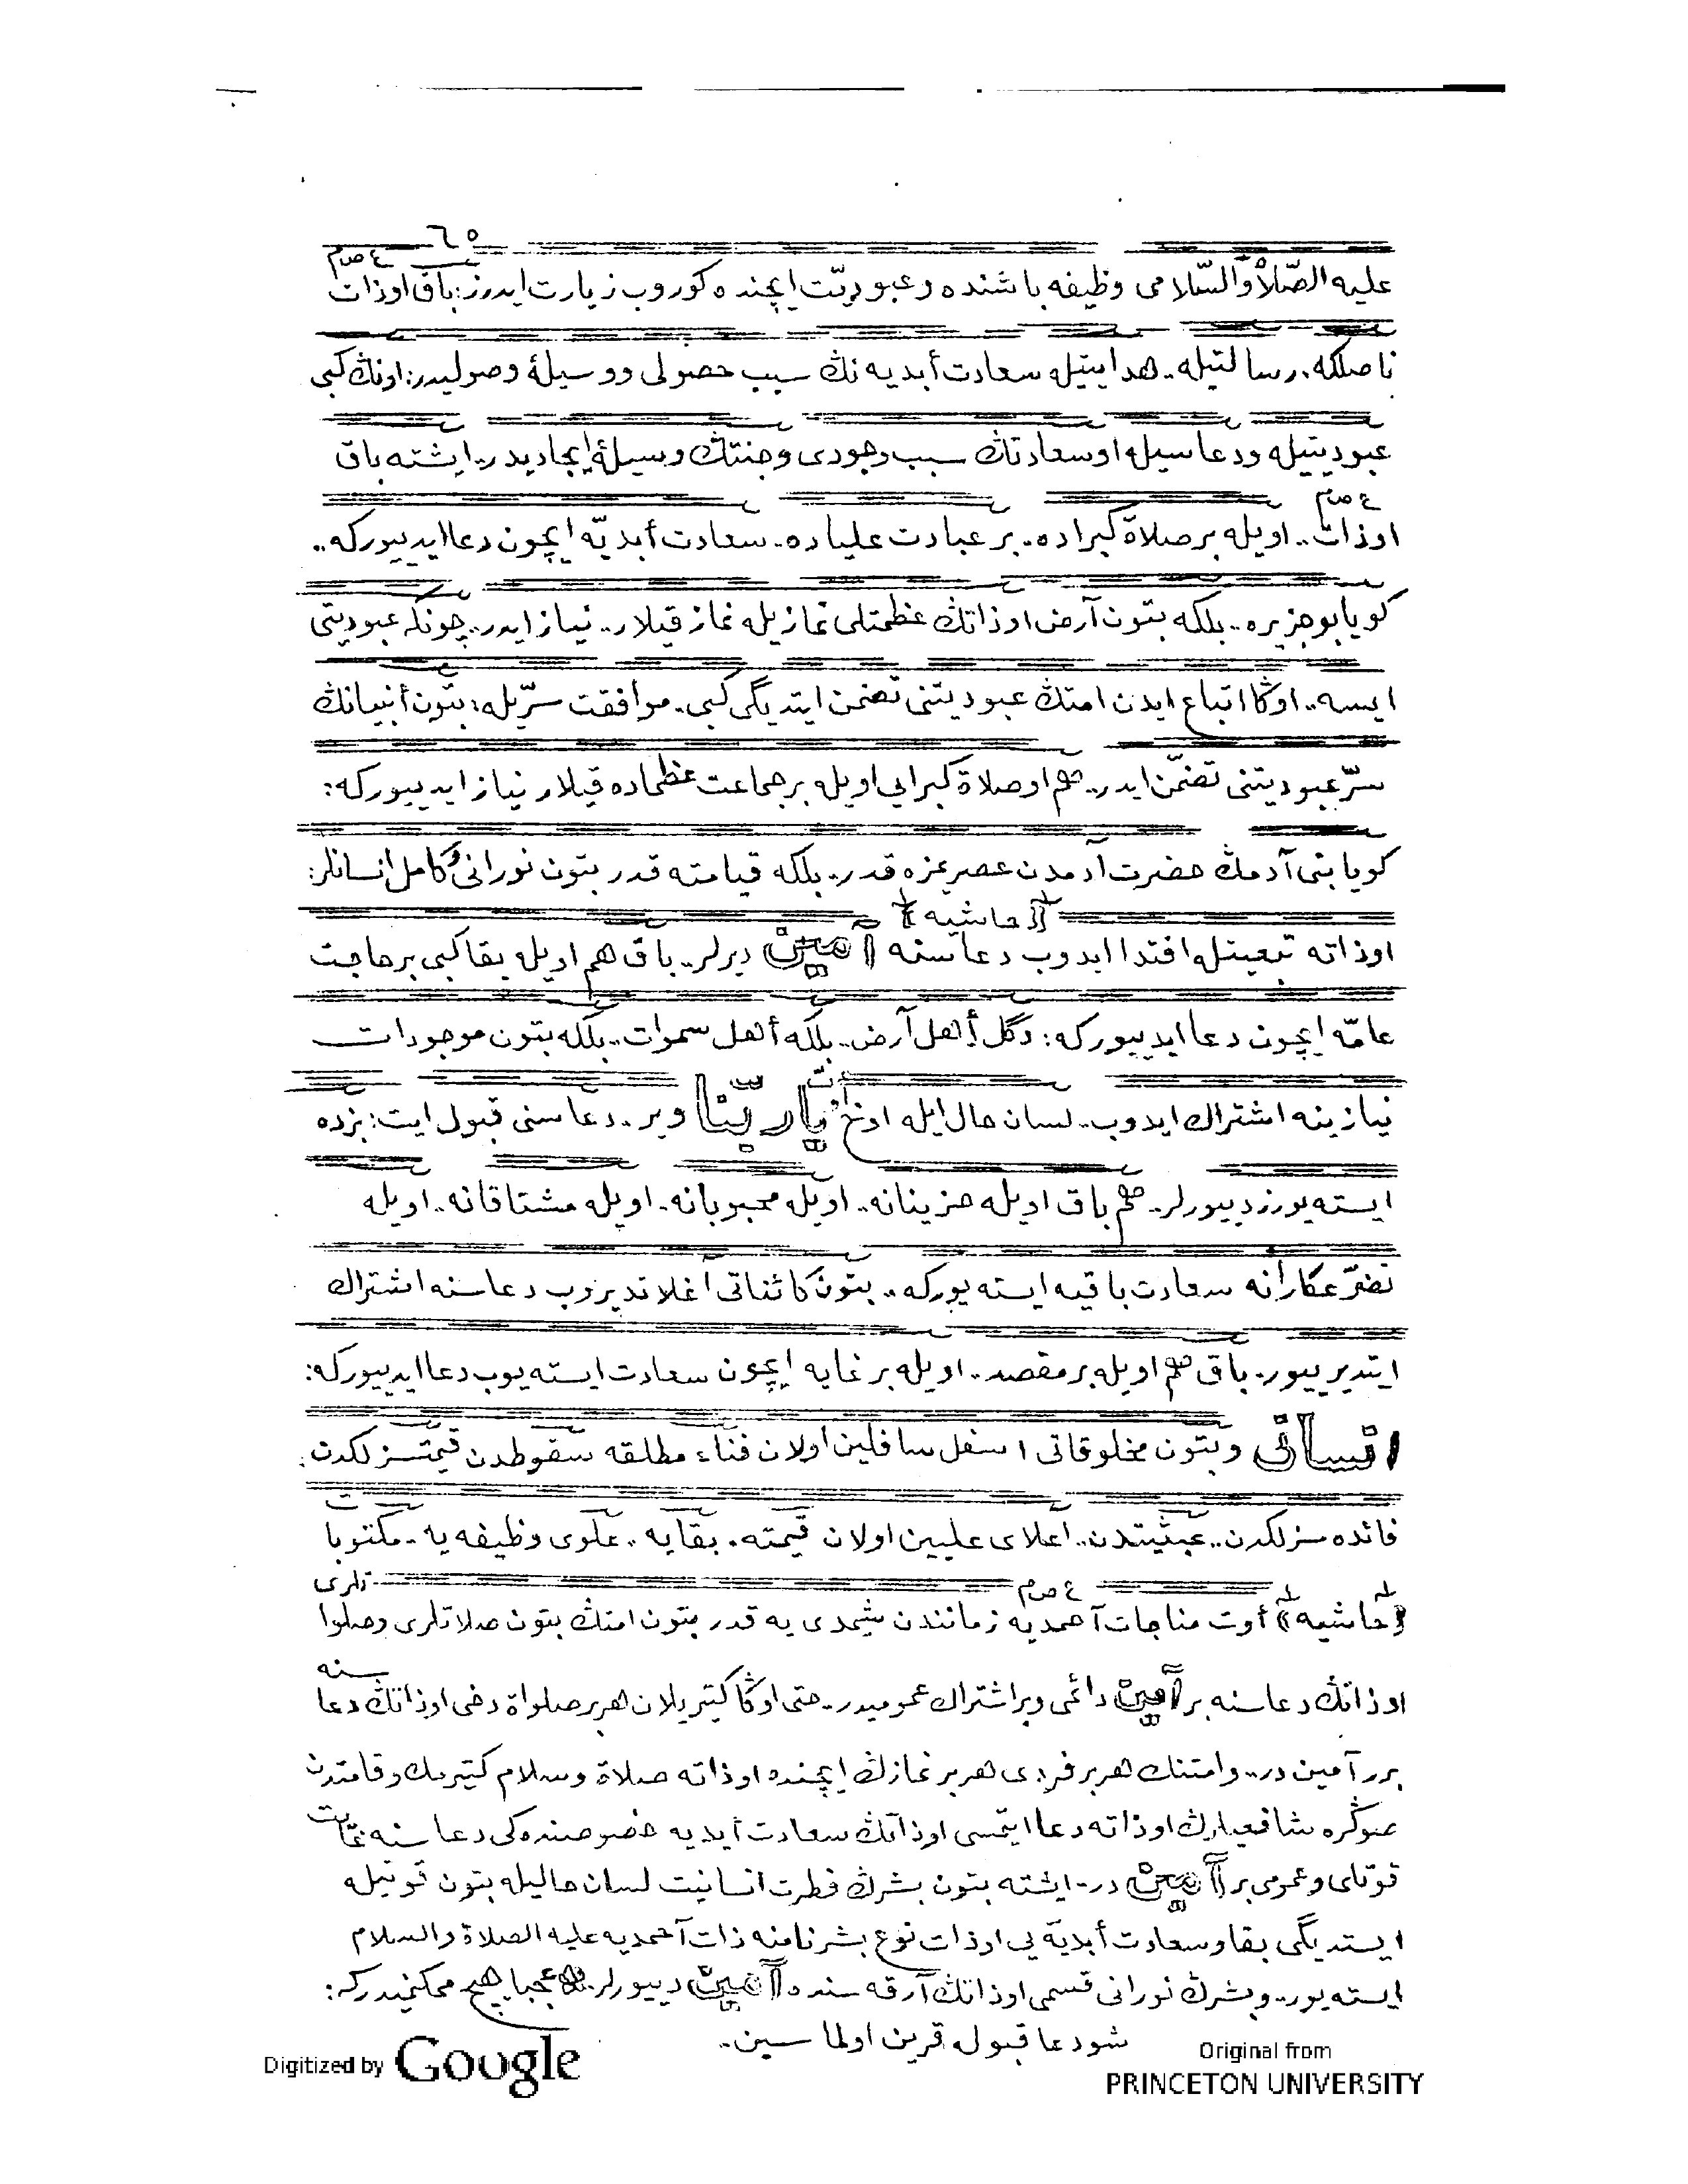 ٦٥
ع ص م
عليه الصّلاة والسّلامى وظيفه باشنده وعبوديّت ايچنده كوروب زيارت ايدرز: باق اوذات
ناصلكه.. رسالتيله.. هدايتيله سعادت أبديه نڭ سبب حصولى ووسيلهٔ وصوليدر: اونڭ كبى
عبوديتيله ودعاسيله اوسعادتڭ سبب وجودى وجنتڭ وسيلهٔ ايجاديدر.. ايشته باق
ع ص م
اوذات.. اويله برصلاة كبراده.. بر عبادت علياده.. سعادت أبديّه ايچون دعا ايدييوركه..
كويا بوجزيره.. بلكه بتون آرض اوذاتڭ عظمتلى نمازيله نماز قيلار.. نياز ايدر.. چونكه عبوديتى
ايسه.. اوڭا اتباع ايدن امتڭ عبوديتنى تضمن ايتديگى كبى.. موافقت سرّيله: بتون أنبيانڭ
سرّ عبوديتنى تضمّن ايدر.. هم اوصلاة كبرايى اويله بر جماعت عظماده قيلار نياز ايدييوركه:
كويا بنى آدمڭ حضرت آدمدن عصريمزه قدر.. بلكه قيامته قدر بتون نورانى وكامل انسانلر:
﴿حاشيه﴾
اوذاته تبعيتله اقتدا ايدوب دعاسنه آمين ديرلر.. باق هم اويله بقا كبى بر حاجت
عامّه ايچون دعا ايدييوركه: دگل أهل آرض.. بلكه أهل سموات.. بلكه بتون موجودات
نيازينه اشتراك ايدوب.. لسان حال ايله اوت يا ربّنا وير.. دعاسنى قبول ايت: بزده
ايسته يورز دييورلر.. هم باق اويله حزينانه.. اويله محبوبانه.. اويله مشتاقانه.. اويله
تضرّعكارانه سعادت باقيه ايسته يوركه.. بتون كائناتى آغلاتديروب دعاسنه اشتراك
ايتديرييور.. باق هم اويله بر مقصد.. اويله بر غايه ايچون سعادت ايسته يوب دعا ايدييوركه:
انسانى وبتون مخلوقاتى اسفل سافلين اولان فناء مطلقه سقوطدن قيمتسزلكدن:
فائده سزلكدن.. عبثيتدن.. أعلاى عليين اولان قيمته.. بقايه.. علوى وظيفه يه.. مكتوبا
ع ص م
تلرى
﴿حاشيه﴾ أوت مناجات آحمديه زمانندن شيمدى يه قدر بتون امتڭ بتون صلاتلرى وصلوا
سنه
اوذاتڭ دعاسنه بر آمين دائمى وبر اشتراك عموميدر.. حتى اوڭا كتيريلان هر بر صلواة دخى اوذاتڭ دعا
برر آمين در.. وامتنڭ هر بر فردى هر بر نمازڭ ايچنده اوذاته صلاة وسلام كتيرمك وقامتدن
صوڭره شافعيلرڭ اوذاته دعا ايتمسى اوذاتڭ سعادت أبديه خصوصنده كى دعاسنه غايت
قوتلى وعمومى بر آمين در.. ايشته بتون بشرڭ فطرت انسانيت لسان حاليله بتون قوتيله
ايستديگى بقا وسعادت أبديه يى اوذات نوع بشر نامنه ذات آحمديه عليه الصلاة والسلام
ايسته يور.. وبشرڭ نورانى قسمى اوذاتڭ آرقه سنده آمين دييورلر.. عجبا هيچ ممكنميدركه:
شودعا قبول قرين اولماسين..
Digitized by Google
Original from
PRINCETON UNIVERSITY